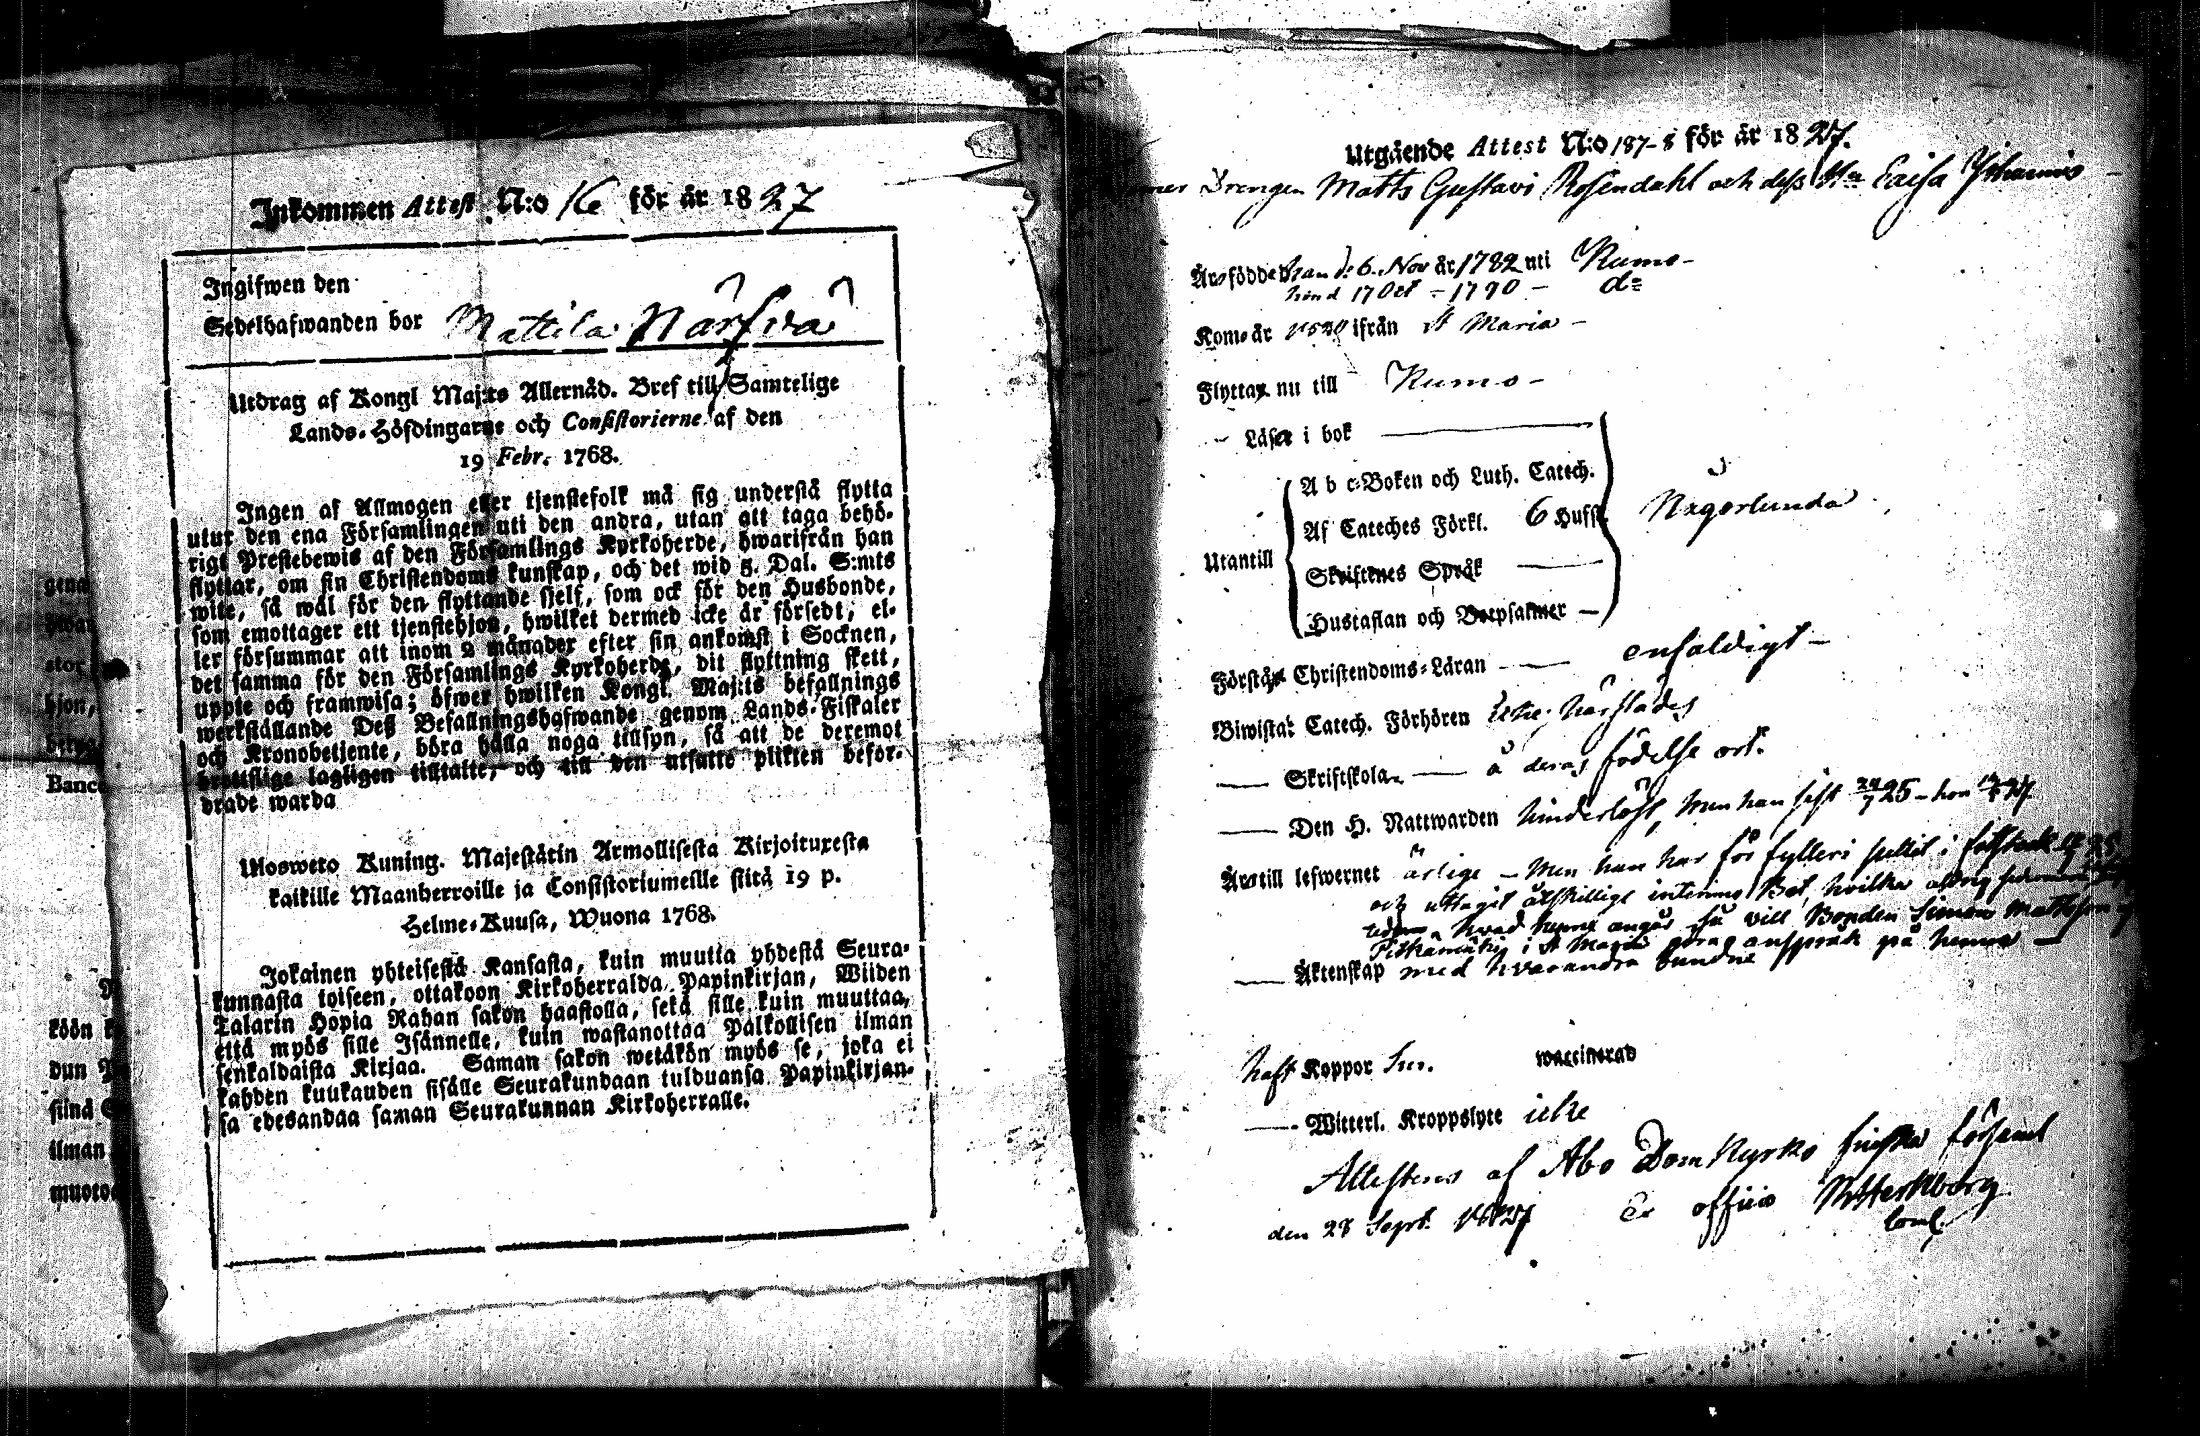 Inkommen Attest N:o 16 för år 1827
Ingifwen den
Sedelhafwanden bor Mattila Närfvä
Utdrag af Kongl Maj:ts Allernåd. Bref till Samtelige
Lands-Höfdingarne och Consistorierne af den
19 Febr. 1768.
Ingen af Allmogen eller tjenstefolk må sig understå flytta
utur den ena Församlingen uti den andra, utan att taga behö-
rigt Prestebewis af den Församlings Kyrkoherde, hwarifrån han
flyttar, om sin Christendoms kunskap, och det wid 5. Dal. S:mts
wite, så wäl för den flyttande sjelf, som ock för den Husbonde,
som emottager ett tjenstehjon, hwilket dermed icke är försedt, el-
ler försummar att inom 2 månader efter sin ankomst i Socknen,
det samma för den Församlings Kyrkoherde, dit flyttning skett,
uppte och framwisa; öfwer hwilken Kongl. Maj:ts befallnings
werkställande Deß Befallningshafwande genom Lands-Fiskaler
och Kronobetjente, böra hålla noga tillsyn, så att de deremot
brottslige lagligen tilltalte, och till den utsatte plikten befor-
drade warda
Ulosweto Kuning. Majestätin Armollisesta Kirjoituxesta
kaikille Maanherroille ja Consistoriumeille siitä 19 p.
Helme-Kuusa, Wuona 1768.
Jokainen yhteisestä Kansasta, kuin muutta yhdestä Seura-
kunnasta toiseen, ottakoon Kirkoherralda Papinkirjan, Wiiden
Talarin Hopia Rahan sakon haastolla, sekä sille kuin muuttaa,
että myös sille Isännelle, kuin wastanottaa Palkollisen ilman
senkaldaista Kirjaa. Saman sakon wetäkön myös se, joka ei
kahden kuukauden sisälle Seurakundaan tulduansa Papinkirjan-
sa edesandaa saman Seurakunnan Kirkoherralle.
Utgående Attest N:o 187-8 för år 1827.
Drengen Matts Gustavi Rosendahl och dess Hu Caisa Johannis
Äro födde han d: 6. Nov år 1782 uti Kumo-
hon d 17 Oct - 1790 - do
Kom år 1820 ifrån St Maria -
Flytta nu till Kumo -
Läsa i bok
A b c-Boken och Luth. Catech.
Af Cateches Förkl. 6 Hufst. Någorlunda
Utantill
Skriftenes Språk
Hustaflan och Botpsalmer
Förstå Christendoms-Läran enfaldigt -
Biwistat Catech. Förhören icke härstädes
Skriftskola å deras födelse ort.
Den H. Nattwarden hinderlöst, men han sist 25 - hon 27
Äro till lefwernet ärlige - men han har för fylleri suttit i
och uttagit åtskillige interims Bet, hvilka aldrig
hvad henne angår så vill Bonden Simon Mattsson
i St Maria göra anspråk på henne -
Äktenskap med hvarandra bundne
haft Koppor waccinerad
Witterl. Kroppslyte icke
Attesteras af Abo DomKyrko finska församl
den 28 Sept. 1827 Ex officio